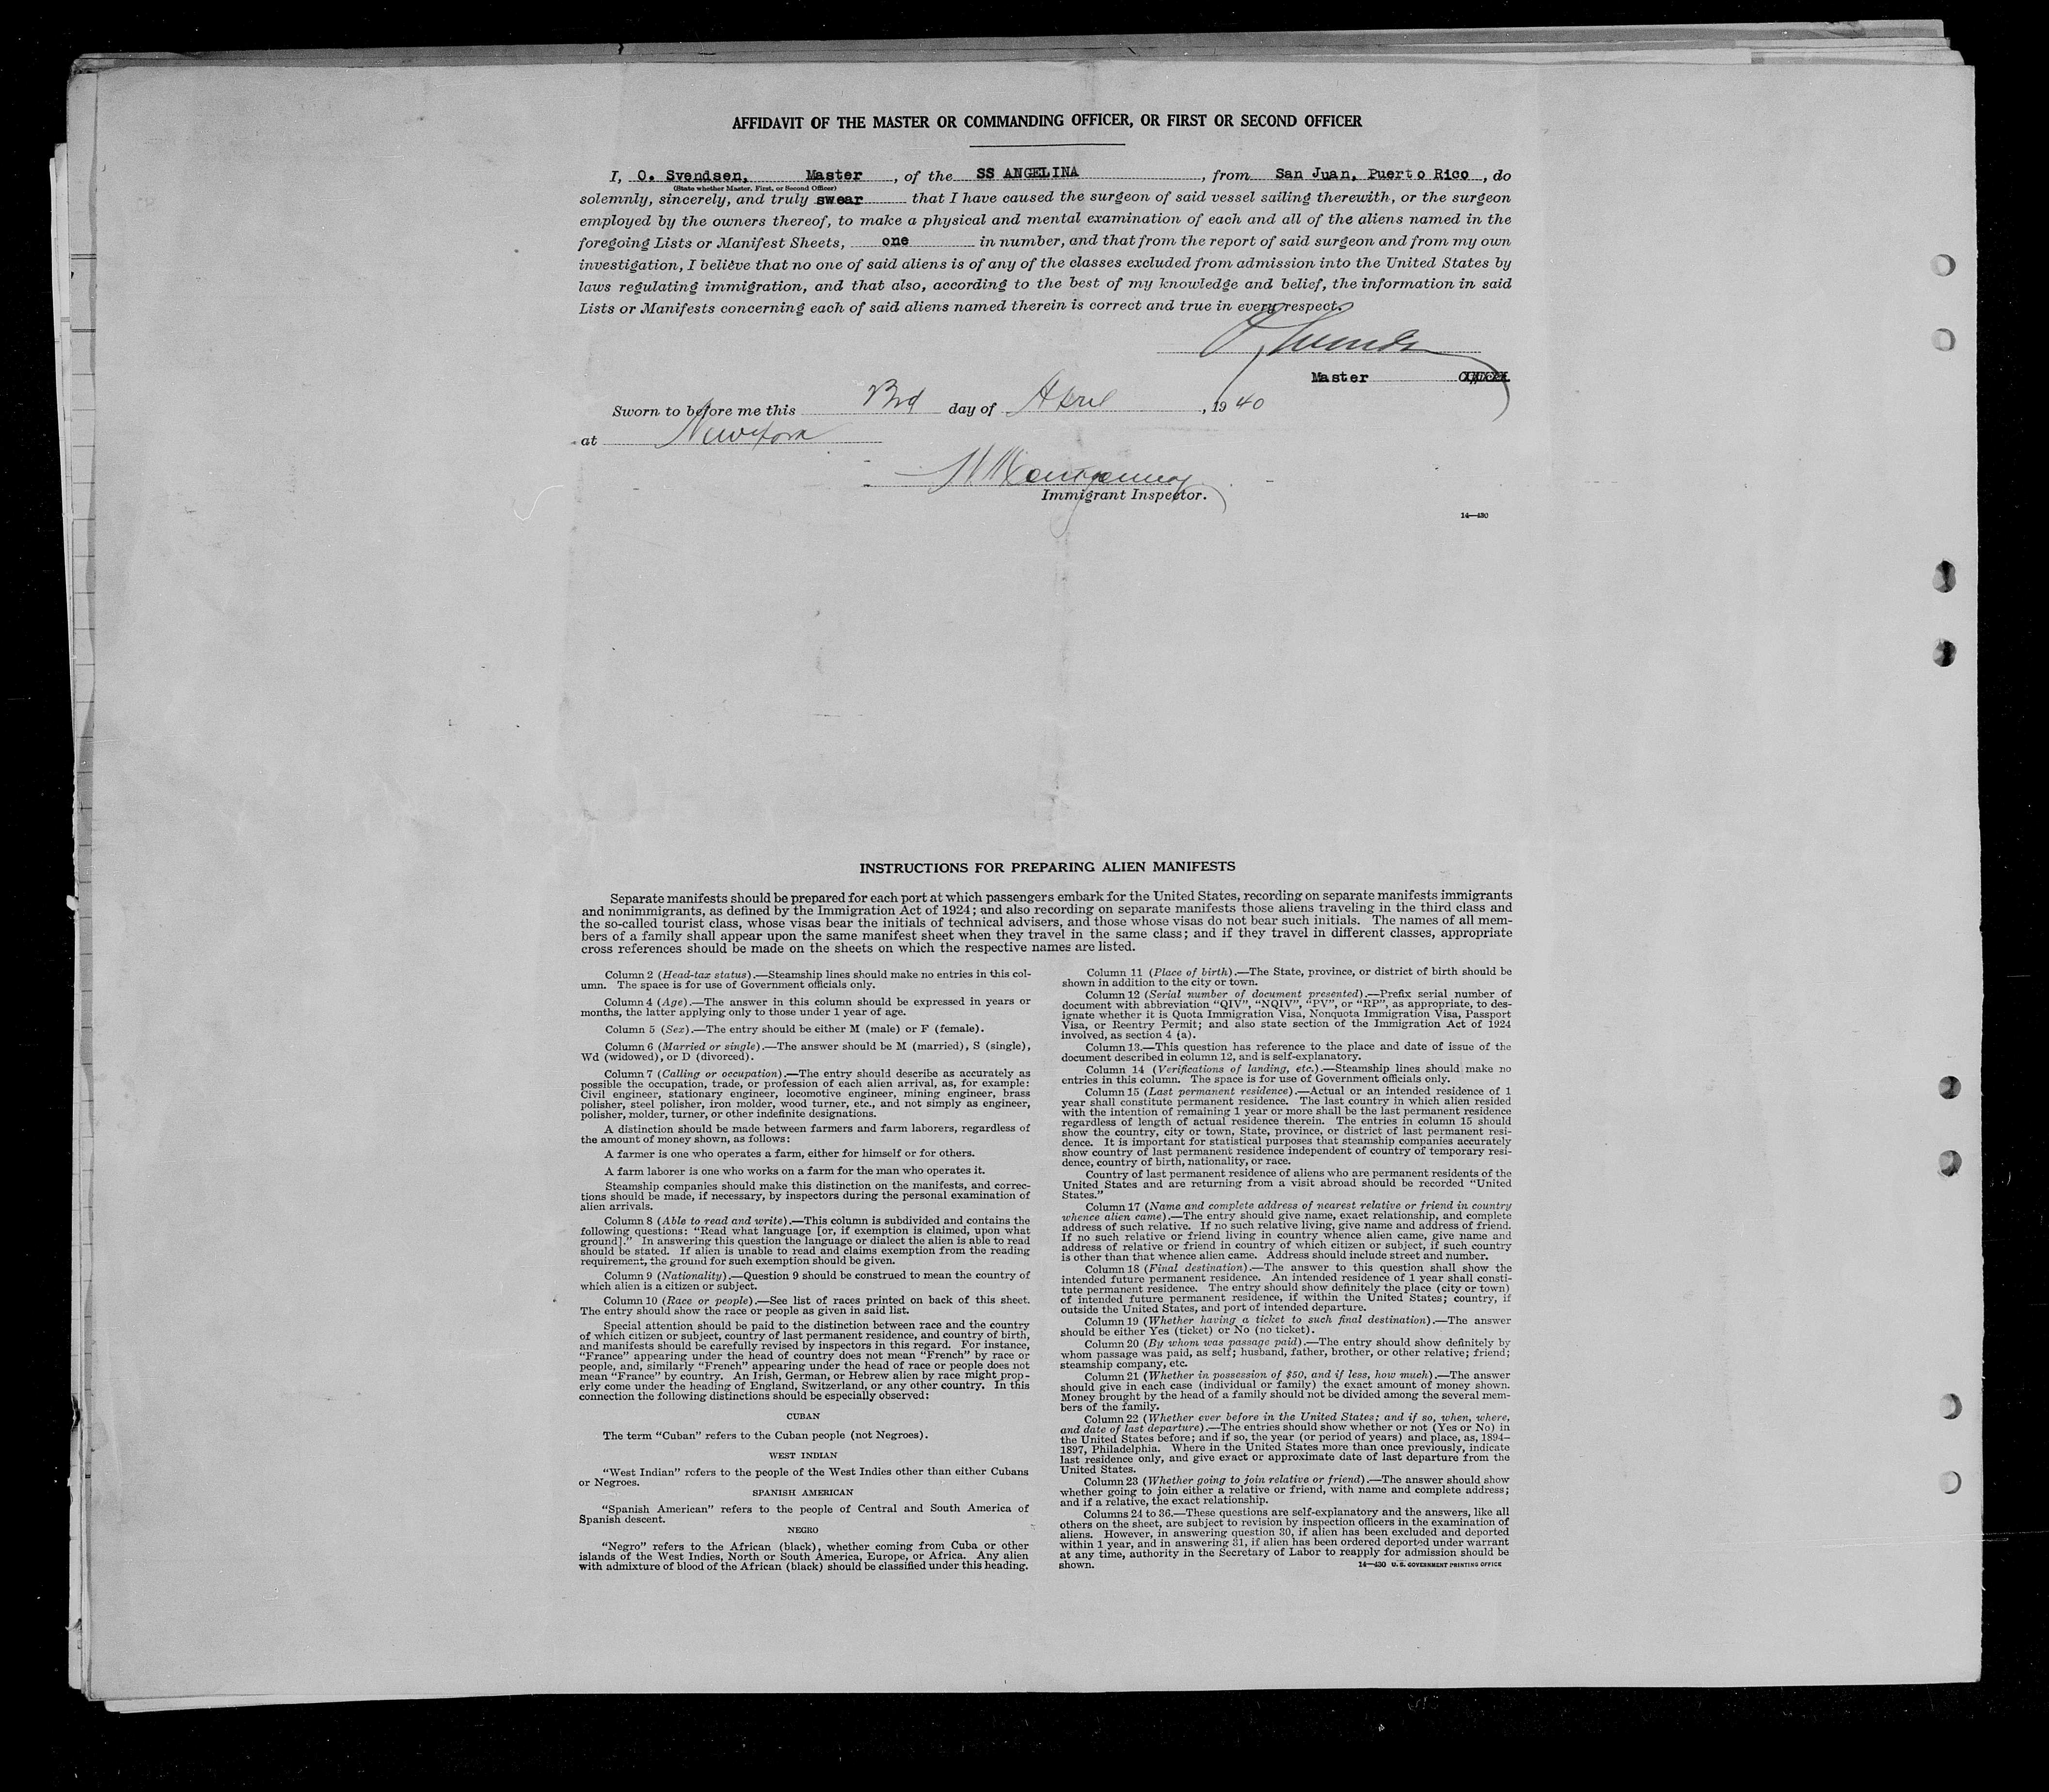 AFFIDAVIT OF THE MASTER OR COMMANDING OFFICER, OR FIRST OR SECOND OFFICER
I, O. Svendsen, Master, of the SS ANGELINA, from San Juan, Puerto Rico, do
(State whether Master, First, or Second Officer)
solemnly, sincerely, and truly swear that I have caused the surgeon of said vessel sailing therewith, or the surgeon
employed by the owners thereof, to make a physical and mental examination of each and all of the aliens named in the
foregoing Lists or Manifest Sheets, one in number, and that from the report of said surgeon and from my own
investigation, I believe that no one of said aliens is of any of the classes excluded from admission into the United States by
laws regulating immigration, and that also, according to the best of my knowledge and belief, the information in said
Lists or Manifests concerning each of said aliens named therein is correct and true in every respect.
Master
Sworn to before me this 3rd day of April, 1940
at New York
Immigrant Inspector.
14—430
INSTRUCTIONS FOR PREPARING ALIEN MANIFESTS
Separate manifests should be prepared for each port at which passengers embark for the United States, recording on separate manifests immigrants
and nonimmigrants, as defined by the Immigration Act of 1924; and also recording on separate manifests those aliens traveling in the third class and
the so-called tourist class, whose visas bear the initials of technical advisers, and those whose visas do not bear such initials. The names of all mem-
bers of a family shall appear upon the same manifest sheet when they travel in the same class; and if they travel in different classes, appropriate
cross references should be made on the sheets on which the respective names are listed.
Column 2 (Head-tax status).—Steamship lines should make no entries in this col-
umn. The space is for use of Government officials only.
Column 4 (Age).—The answer in this column should be expressed in years or
months, the latter applying only to those under 1 year of age.
Column 5 (Sex).—The entry should be either M (male) or F (female).
Column 6 (Married or single).—The answer should be M (married), S (single),
Wd (widowed), or D (divorced).
Column 7 (Calling or occupation).—The entry should describe as accurately as
possible the occupation, trade, or profession of each alien arrival, as, for example:
Civil engineer, stationary engineer, locomotive engineer, mining engineer, brass
polisher, steel polisher, iron molder, wood turner, etc., and not simply as engineer,
polisher, molder, turner, or other indefinite designations.
A distinction should be made between farmers and farm laborers, regardless of
the amount of money shown, as follows:
A farmer is one who operates a farm, either for himself or for others.
A farm laborer is one who works on a farm for the man who operates it.
Steamship companies should make this distinction on the manifests, and correc-
tions should be made, if necessary, by inspectors during the personal examination of
alien arrivals.
Column 8 (Able to read and write).—This column is subdivided and contains the
following questions: “Read what language [or, if exemption is claimed, upon what
ground].” In answering this question the language or dialect the alien is able to read
should be stated. If alien is unable to read and claims exemption from the reading
requirement, the ground for such exemption should be given.
Column 9 (Nationality).—Question 9 should be construed to mean the country of
which alien is a citizen or subject.
Column 10 (Race or people).—See list of races printed on back of this sheet.
The entry should show the race or people as given in said list.
Special attention should be paid to the distinction between race and the country
of which citizen or subject, country of last permanent residence, and country of birth,
and manifests should be carefully revised by inspectors in this regard. For instance,
“France” appearing under the head of country does not mean “French” by race or
people, and, similarly “French” appearing under the head of race or people does not
mean “France” by country. An Irish, German, or Hebrew alien by race might prop-
erly come under the heading of England, Switzerland, or any other country. In this
connection the following distinctions should be especially observed:
CUBAN
The term “Cuban” refers to the Cuban people (not Negroes).
WEST INDIAN
“West Indian” refers to the people of the West Indies other than either Cubans
or Negroes.
SPANISH AMERICAN
“Spanish American” refers to the people of Central and South America of
Spanish descent.
NEGRO
“Negro” refers to the African (black), whether coming from Cuba or other
islands of the West Indies, North or South America, Europe, or Africa. Any alien
with admixture of blood of the African (black) should be classified under this heading.
Column 11 (Place of birth).—The State, province, or district of birth should be
shown in addition to the city or town.
Column 12 (Serial number of document presented).—Prefix serial number of
document with abbreviation “QIV”, “NQIV”, “PV”, or “RP”, as appropriate, to des-
ignate whether it is Quota Immigration Visa, Nonquota Immigration Visa, Passport
Visa, or Reentry Permit; and also state section of the Immigration Act of 1924
involved, as section 4 (a).
Column 13.—This question has reference to the place and date of issue of the
document described in column 12, and is self-explanatory.
Column 14 (Verifications of landing, etc.).—Steamship lines should make no
entries in this column. The space is for use of Government officials only.
Column 15 (Last permanent residence).—Actual or an intended residence of 1
year shall constitute permanent residence. The last country in which alien resided
with the intention of remaining 1 year or more shall be the last permanent residence
regardless of length of actual residence therein. The entries in column 15 should
show the country, city or town, State, province, or district of last permanent resi-
dence. It is important for statistical purposes that steamship companies accurately
show country of last permanent residence independent of country of temporary resi-
dence, country of birth, nationality, or race.
Country of last permanent residence of aliens who are permanent residents of the
United States and are returning from a visit abroad should be recorded “United
States.”
Column 17 (Name and complete address of nearest relative or friend in country
whence alien came).—The entry should give name, exact relationship, and complete
address of such relative. If no such relative living, give name and address of friend.
If no such relative or friend living in country whence alien came, give name and
address of relative or friend in country of which citizen or subject, if such country
is other than that whence alien came. Address should include street and number.
Column 18 (Final destination).—The answer to this question shall show the
intended future permanent residence. An intended residence of 1 year shall consti-
tute permanent residence. The entry should show definitely the place (city or town)
of intended future permanent residence, if within the United States; country, if
outside the United States, and port of intended departure.
Column 19 (Whether having a ticket to such final destination).—The answer
should be either Yes (ticket) or No (no ticket).
Column 20 (By whom was passage paid).—The entry should show definitely by
whom passage was paid, as self; husband, father, brother, or other relative; friend;
steamship company, etc.
Column 21 (Whether in possession of $50, and if less, how much).—The answer
should give in each case (individual or family) the exact amount of money shown.
Money brought by the head of a family should not be divided among the several mem-
bers of the family.
Column 22 (Whether ever before in the United States; and if so, when, where,
and date of last departure).—The entries should show whether or not (Yes or No) in
the United States before; and if so, the year (or period of years) and place, as, 1894–
1897, Philadelphia. Where in the United States more than once previously, indicate
last residence only, and give exact or approximate date of last departure from the
United States.
Column 23 (Whether going to join relative or friend).—The answer should show
whether going to join either a relative or friend, with name and complete address;
and if a relative, the exact relationship.
Columns 24 to 36.—These questions are self-explanatory and the answers, like all
others on the sheet, are subject to revision by inspection officers in the examination of
aliens. However, in answering question 30, if alien has been excluded and deported
within 1 year, and in answering 31, if alien has been ordered deported under warrant
at any time, authority in the Secretary of Labor to reapply for admission should be
shown.
14—430 U. S. GOVERNMENT PRINTING OFFICE